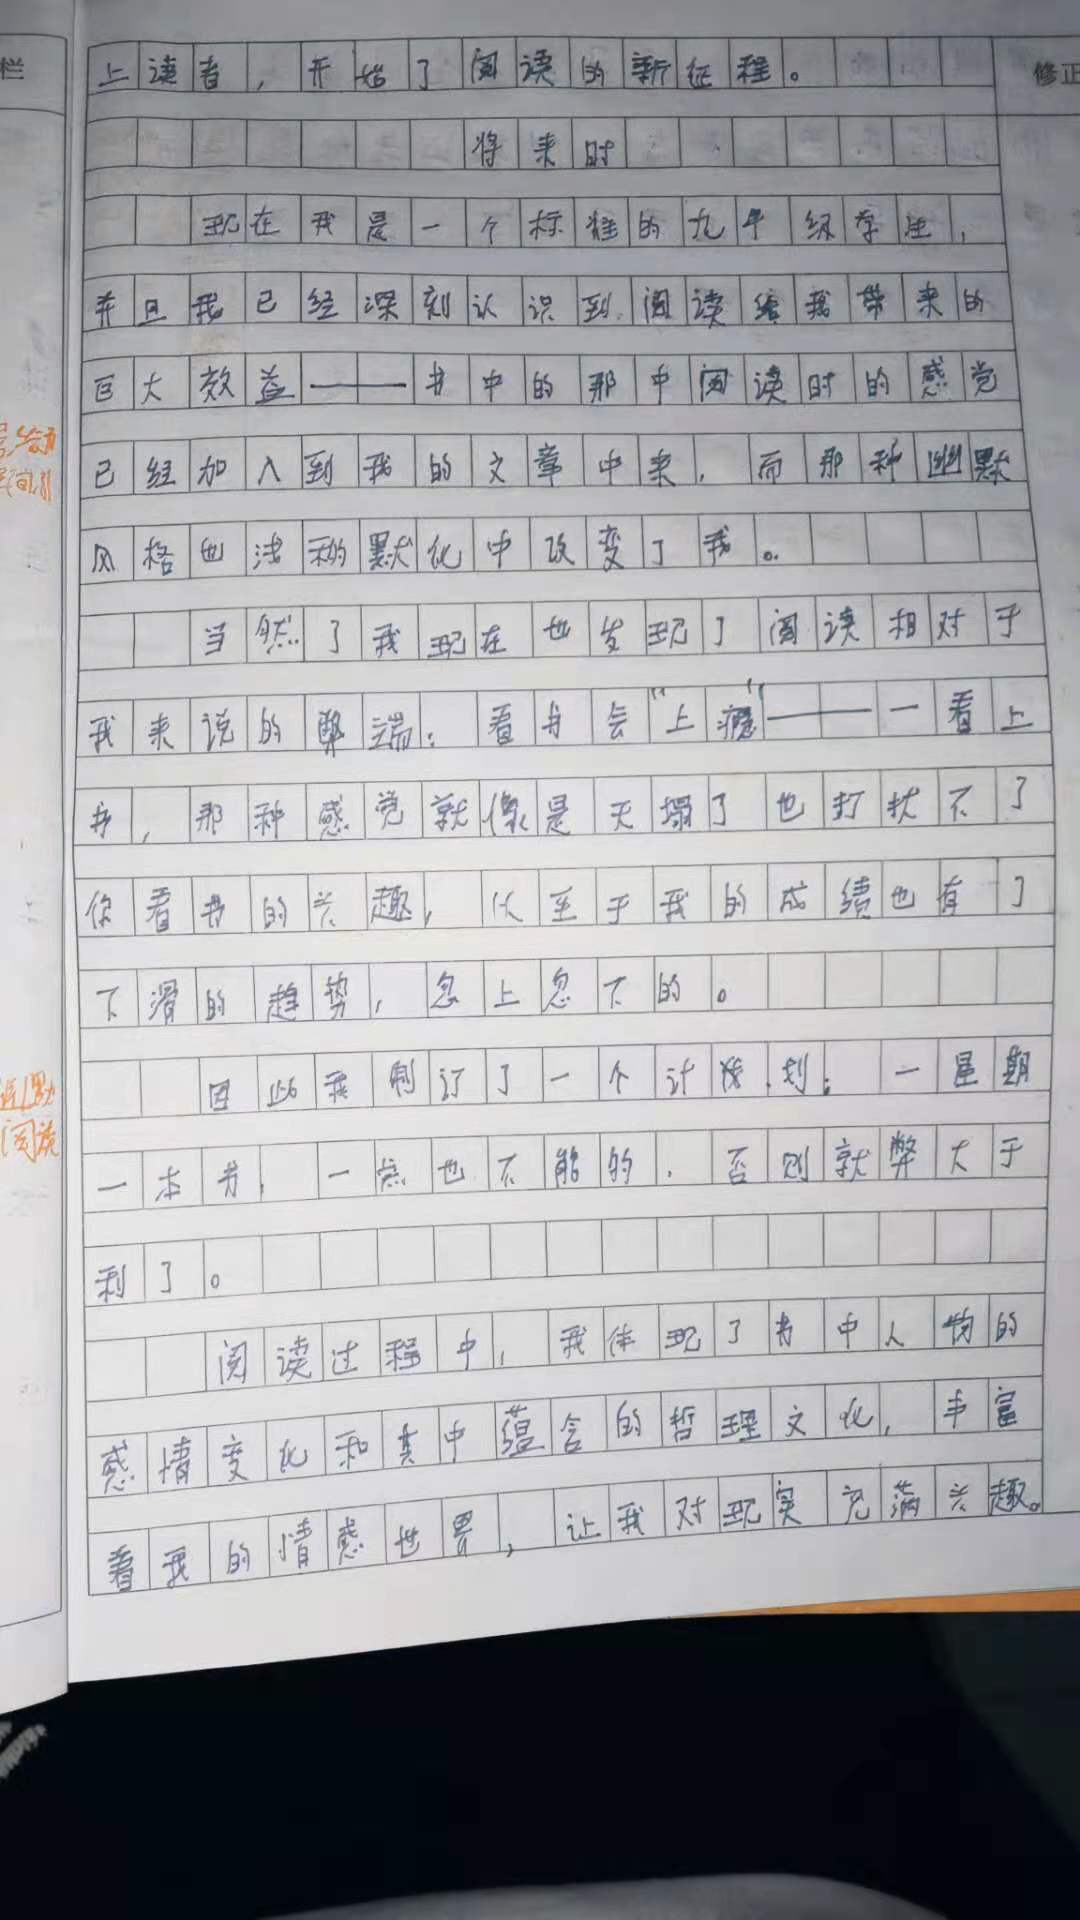 栏
修正
上读者，开始了阅读的新征程。
将来时
现在我是一个标准的九年级学生，
并且我已经深刻认识到阅读给我带来的
巨大效益——书中的那中阅读时的感觉
已经加入到我的文章中来，而那种幽默
风格也浅移默化中改变了我。
当然了我现在也发现了阅读相对于
我来说的弊端：看书会“上瘾”——一看上
书，那种感觉就像是天塌了也打扰不了
你看书的兴趣，以至于我的成绩也有了
下滑的趋势，忽上忽下的。
因此我制订了一个计划：一星期
一本书，一点也不能的，否则就弊大于
利了。
阅读过程中，我体现了书中人物的
感情变化和其中蕴含的哲理文化，丰富
着我的情感世界，让我对现实充满兴趣。
阅读